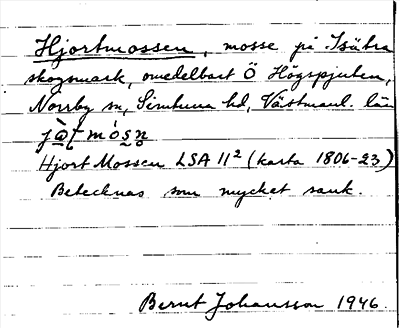 Hjortmossen, mosse på Isätra
skogsmark, omedelbart Ö Högspjuten,
Norrby sn, Simtuna hd, Västmanl. län
Hjort Mossen LSA 11² (karta 1806-23)
Betecknas som mycket sank.
Bernt Johansson 1946.